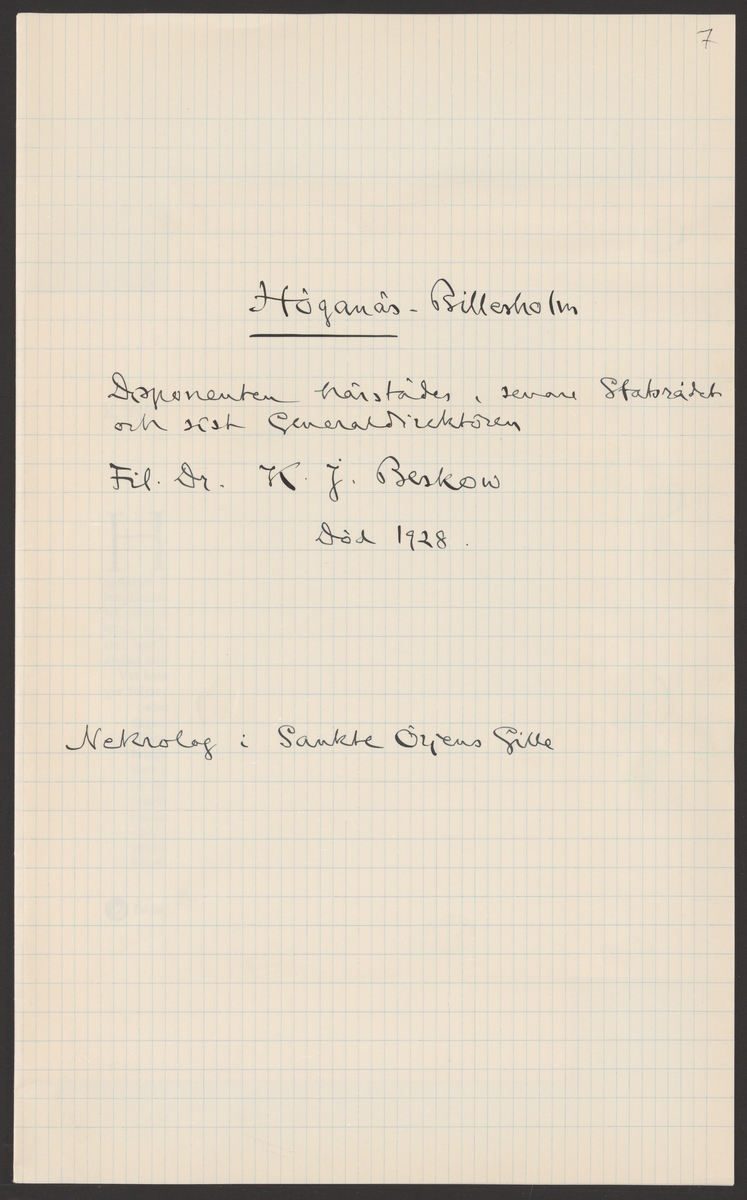 7
Höganäs - Billesholm
Disponenten härstädes, senare Statsrådet
och sist Generaldirektören
Fil. Dr. K. J. Beskow
Död 1928.
Nekrolog i Sankte Örjens Gille